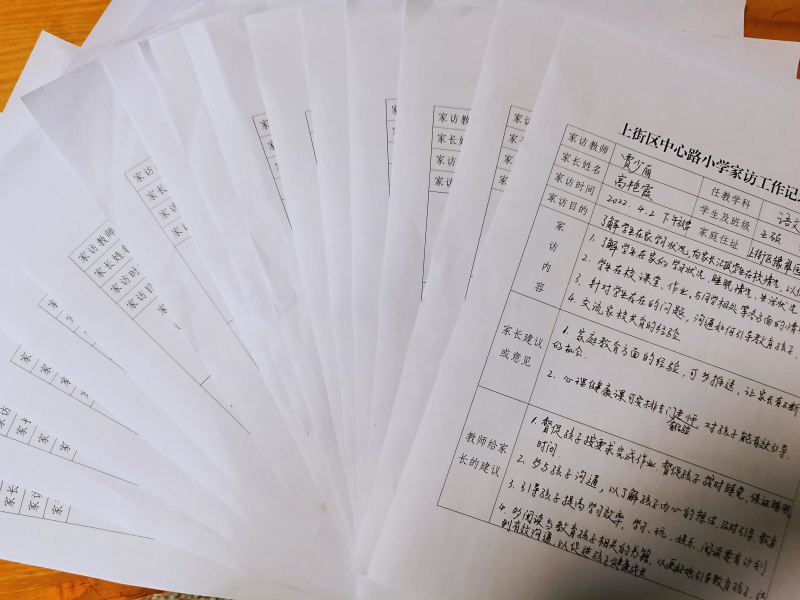 上街区中心路小学家访工作记
家访教师 贾少丽 任教学科 语文
家长姓名 高艳霞 学生及班级 王硕
家访时间 2022.4.2 下午放学 家庭住址 上街区
家访目的 了解学生在家学习状况,向家长汇报学生在校情况,以
家访内容
1. 了解学生在家的学习状况、睡眠情况、生活状况
2. 学生在校课堂、作业、与同学相处等各方面的情
3. 针对学生存在的问题,沟通如何引导教育孩子.
4. 交流家校共育的经验
家长建议或意见
1. 家庭教育方面的经验,可多推送,让家长有不断
的机会.
2. 心理健康课可安排专门老师 对孩子能有效引导.
教师给家长的建议
1. 督促孩子按要求完成作业 督促孩子按时睡觉,保证睡眠
时间.
2. 多与孩子沟通,以了解孩子内心的想法,及时引导、教育
3. 引导孩子提高学习效率,学习、玩、娱乐、阅读要有计划.
4. 多阅读与教育孩子相关的书籍,以更好地引导教育孩子,
到有效沟通,以促进孩子健康成长
家访教师
家长姓名
家访时
家访目
家访教师
家长姓
家访时
家访
家访教
家长姓
家访时
家访目
家访
家长
家访
家访